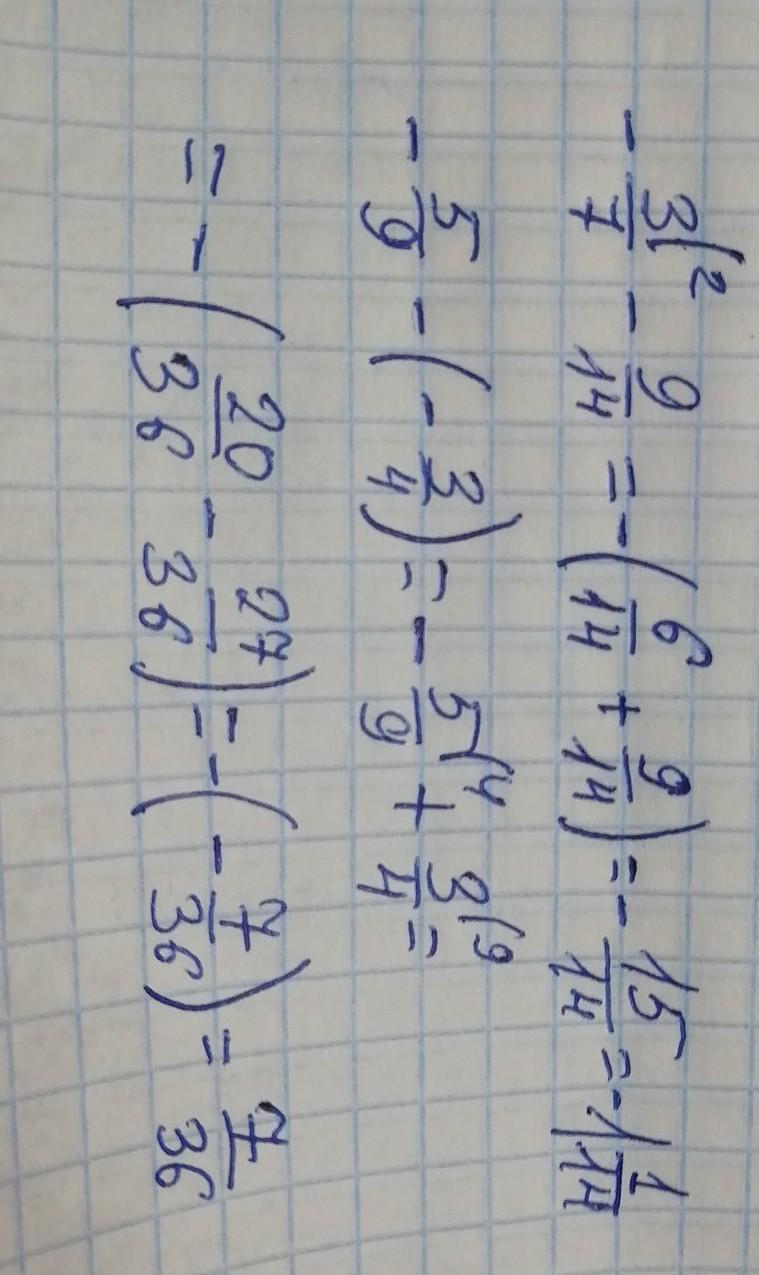 - 3/7 (2 - 9/14 = - (6/14 + 9/14) = - 15/14 = - 1 1/14
- 5/9 - (- 3/4) = - 5/9 (4 + 3/4 (9 =
= - (20/36 - 27/36) = - (- 7/36) = 7/36